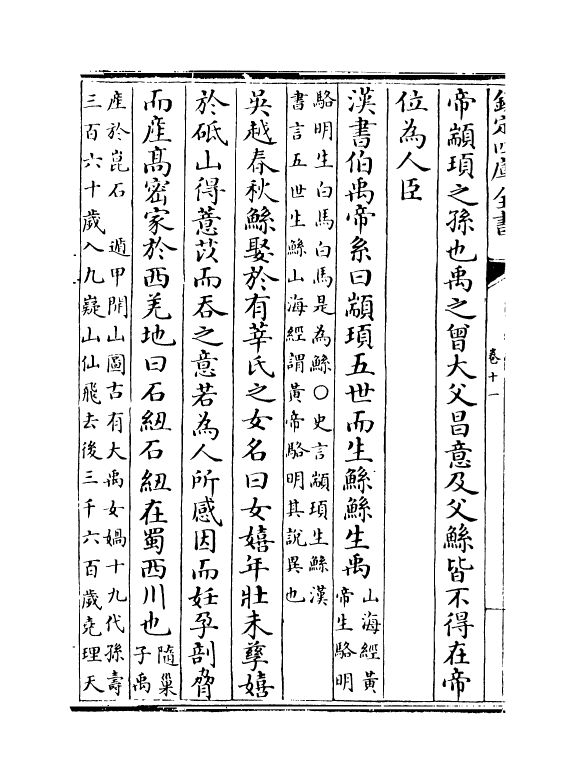 欽定四庫全書
卷十一
帝顓頊之孫也禹之曾大父昌意及父鯀皆不得在帝
位為人臣
漢書伯禹帝系曰顓頊五世而生鯀鯀生禹
山海經黃
帝生駱明
駱明生白馬白馬是為鯀○史言顓頊生鯀漢
書言五世生鯀山海經謂黃帝駱明其說異也
吳越春秋鯀娶於有莘氏之女名曰女嬉年壯未孳嬉
於砥山得薏苡而吞之意若為人所感因而妊孕剖脅
而產髙密家於西羌地曰石紐石紐在蜀西川也
隨巢
子禹
產於崑石 遁甲開山圖古有大禹女媧十九代孫壽
三百六十歲入九嶷山仙飛去後三千六百歲堯理天